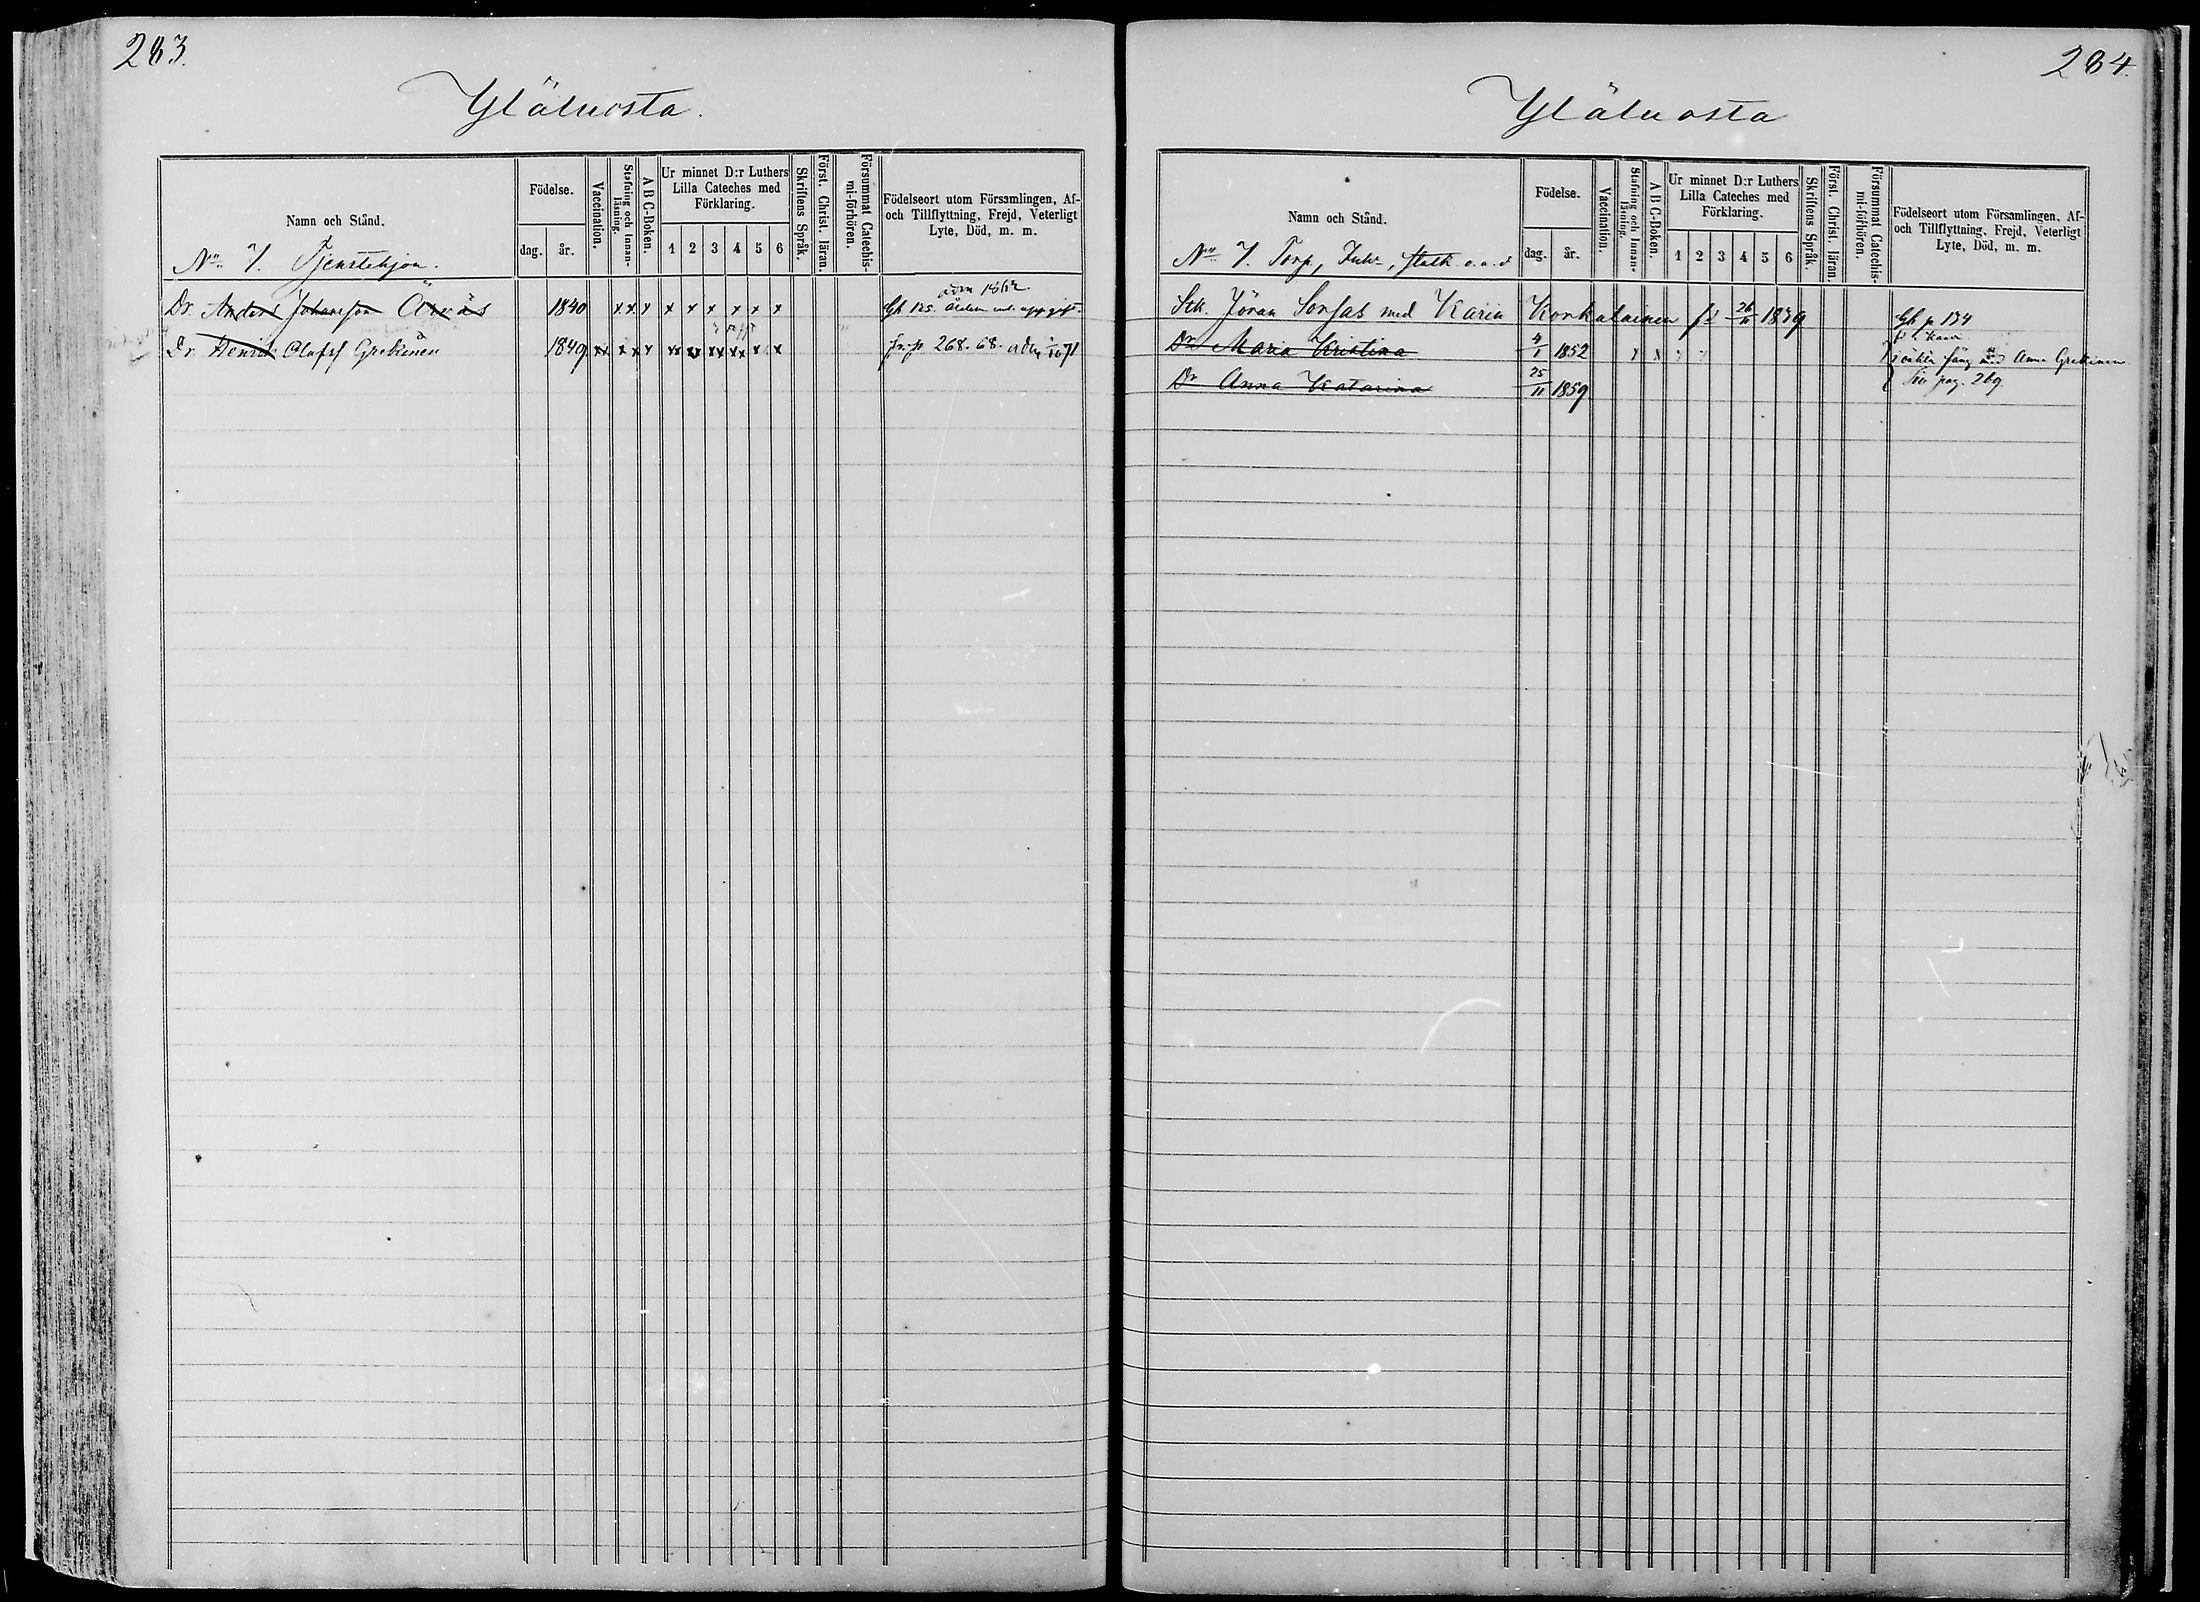 283.
Yläluosta.
Namn och Stånd.
No 7. Tjenstehjon.
Födelse.
dag. år.
Vaccination.
Stafning och Innan-
läsning.
A B C-Boken.
Ur minnet D:r Luthers
Lilla Cateches med
Förklaring.
1 2 3 4 5 6
Skriftens Språk.
Först. Christ. läran.
Försummat Catechis-
mi-förhören.
Födelseort utom Församlingen, Af-
och Tillflyttning, Frejd, Veterligt
Lyte, Död, m. m.
adm 1862
Dr. Anders Johansson 1840 x x x x x x x x x Gh 125. ålder enl. uppgift.
Dr. Henrik Olofss Grekinen 1849 fr. p 268. 68.
284.
Yläluosta
Namn och Stånd.
No 7. Torp, Inh-, Statk. o. a. d
Födelse.
dag. år.
Vaccination.
Stafning och Innan-
läsning.
A B C-Boken.
Ur minnet D:r Luthers
Lilla Cateches med
Förklaring.
1 2 3 4 5 6
Skriftens Språk.
Först. Christ. läran.
Försummat Catechis-
mi-förhören.
Födelseort utom Församlingen, Af-
och Tillflyttning, Frejd, Veterligt
Lyte, Död, m. m.
Jöran Sorsas med Karin Konkalainen Gh p 174
Dr Maria Kristina 4/1 1852 Anna Grekinen
Dr Anna Katarina 25/11 1859 pag. 269